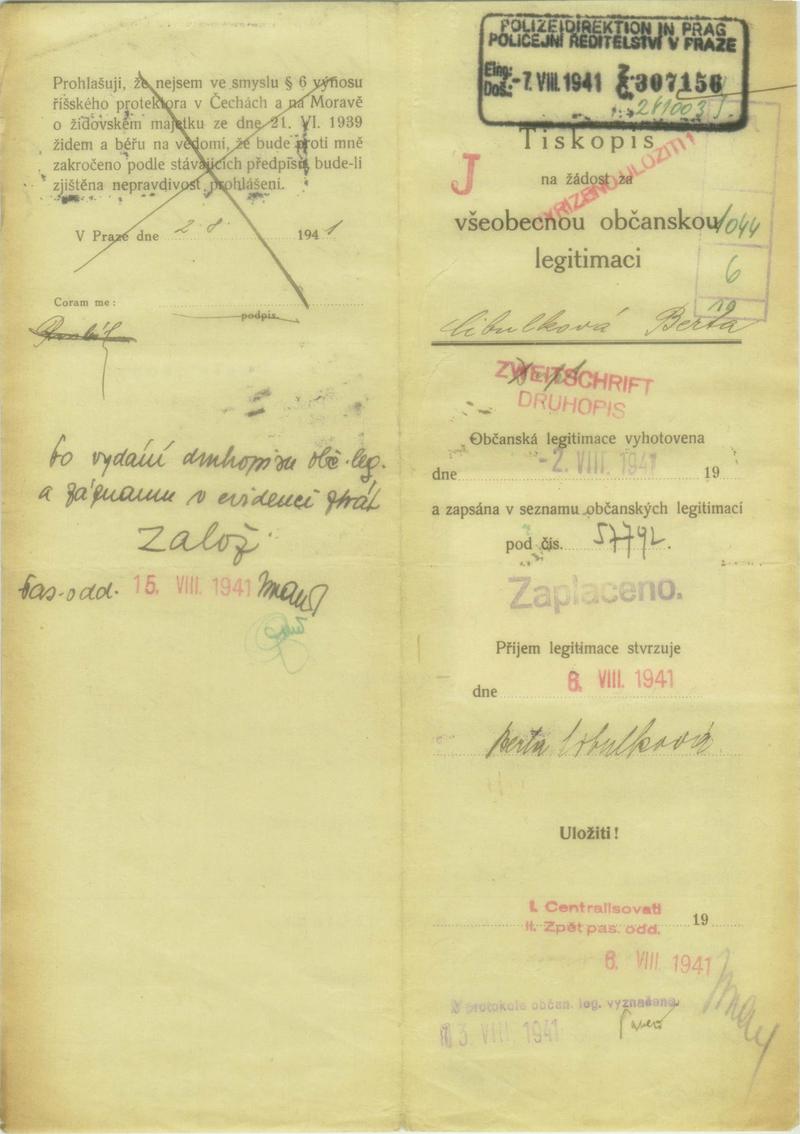 Prohlašuji, že nejsem ve smyslu § 6 výnosu
říšského protektora v Čechách a na Moravě
o židovském majetku ze dne 21. VI. 1939
židem a béřu na vědomí, že bude proti mně
zakročeno podle stávajících předpisů, bude-li
zjištěna nepravdivost prohlášení.
V Praze dne 2 8 1941
Coram me:
podpis.
Po vydání druhopisu obč. leg.
a záznamu v evidenci ztrát
založ.
Pas. odd. 15. VIII. 1941
POLIZEIDIREKTION IN PRAG
POLICEJNÍ ŘEDITELSTVÍ V PRAZE
Eing.
Doš.: -7. VIII. 1941 Z. Č. 307156
Tiskopis
J
na žádost za
VYŘÍZENO ULOŽITI!
všeobecnou občanskou
1044
legitimaci
6
Cibulková Berta
ZWEITSCHRIFT
DRUHOPIS
Občanská legitimace vyhotovena
dne -2. VIII. 1941 19
a zapsána v seznamu občanských legitimací
pod čís. 57792.
Zaplaceno.
Příjem legitimace stvrzuje
dne 6. VIII. 1941
Berta Cibulková
Uložiti!
I. Centralisovati
II. Zpět pas. odd.
19
6. VIII. 1941
V protokole občan. leg. vyznačeno
13. VIII. 1941